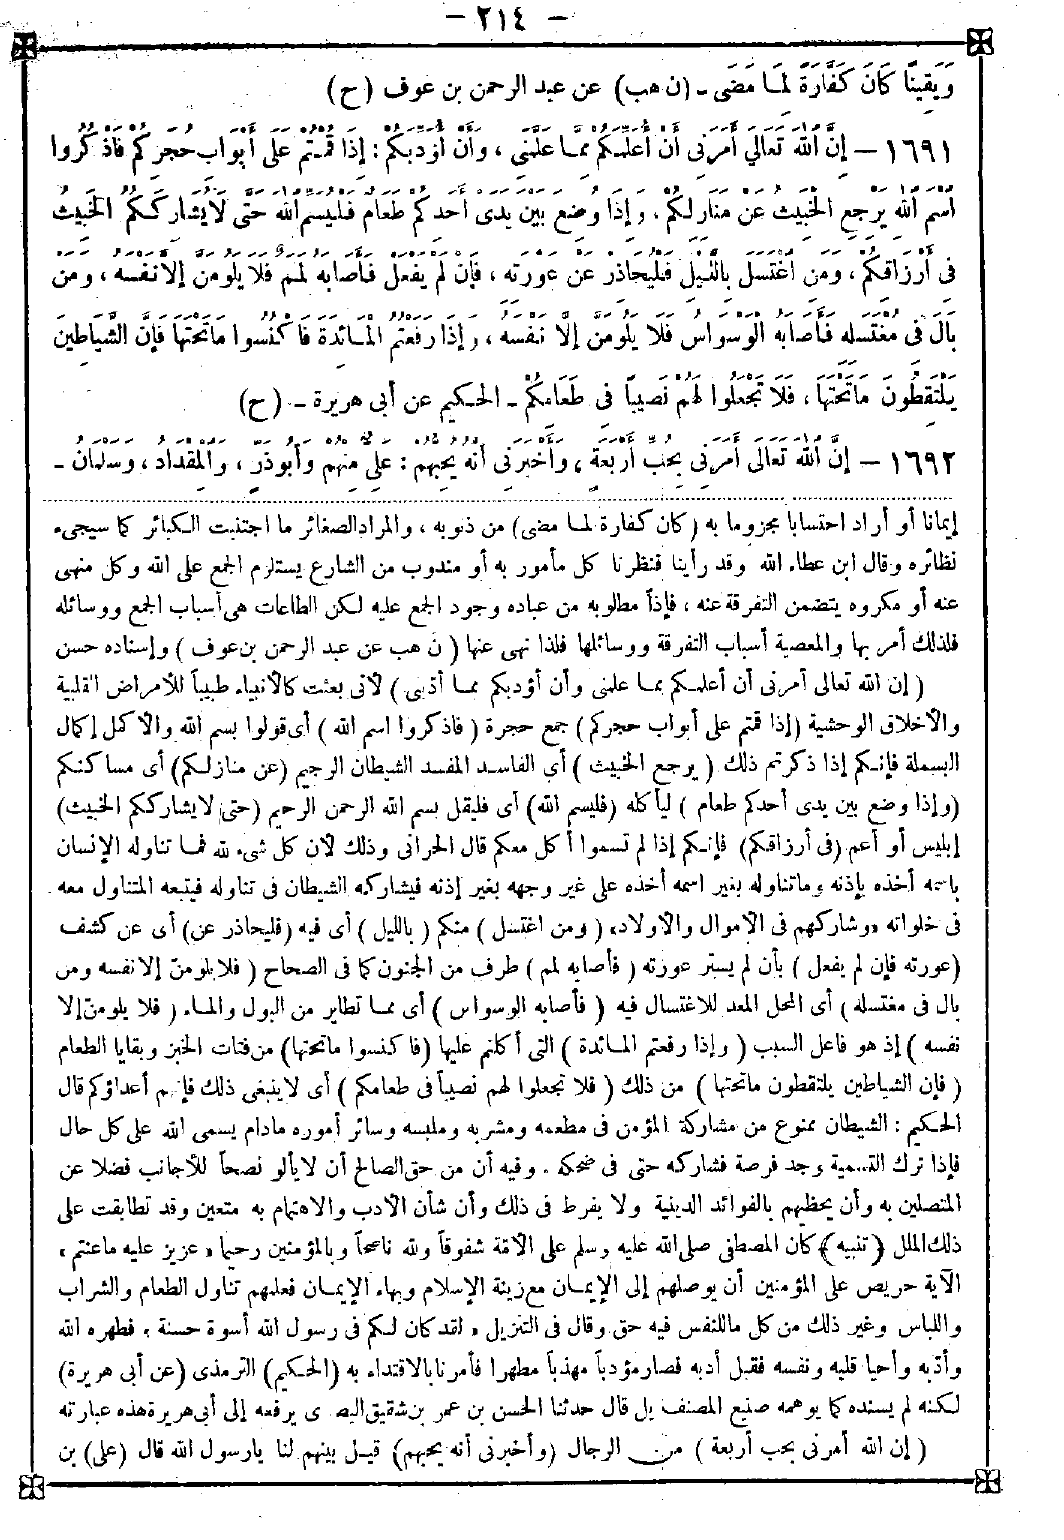 – ٢١٤ –
وَيَقِينًا كَانَ كَفَّارَةً لِمَا مَضَى - (ن هب) عن عبد الرحمن بن عوف (ح)
١٦٩١ – إِنَّ اللهَ تَعَالَى أَمَرَنِي أَنْ أُعَلِّمَكُمْ مِمَّا عَلَّمَنِي ، وَأَنْ أُؤَدِّبَكُمْ : إِذَا قُمْتُمْ عَلَى أَبْوَابِ حُجَرِكُمْ فَاذْكُرُوا
اسْمَ اللهِ يَرْجِعُ الْخَبِيثُ عَنْ مَنَازِلِكُمْ ، وَإِذَا وُضِعَ بَيْنَ يَدَيْ أَحَدِكُمْ طَعَامٌ فَلْيُسَمِّ اللهَ حَتَّى لَا يُشَارِكَكُمُ الْخَبِيثُ
فِي أَرْزَاقِكُمْ ، وَمَنِ اغْتَسَلَ بِاللَّيْلِ فَلْيُحَاذِرْ عَنْ عَوْرَتِهِ ، فَإِنْ لَمْ يَفْعَلْ فَأَصَابَهُ لَمَمٌ فَلَا يَلُومَنَّ إِلَّا نَفْسَهُ ، وَمَنْ
بَالَ فِي مُغْتَسَلِهِ فَأَصَابَهُ الْوَسْوَاسُ فَلَا يَلُومَنَّ إِلَّا نَفْسَهُ ، وَإِذَا رَفَعْتُمُ الْمَائِدَةَ فَاكْنُسُوا مَا تَحْتَهَا فَإِنَّ الشَّيَاطِينَ
يَلْتَقِطُونَ مَا تَحْتَهَا ، فَلَا تَجْعَلُوا لَهُمْ نَصِيبًا فِي طَعَامِكُمْ - الحكيم عن أبى هريرة - (ح)
١٦٩٢ – إِنَّ اللهَ تَعَالَى أَمَرَنِي بِحُبِّ أَرْبَعَةٍ ، وَأَخْبَرَنِي أَنَّهُ يُحِبُّهُمْ : عَلِيٌّ مِنْهُمْ وَأَبُو ذَرٍّ ، وَالْمِقْدَادُ ، وَسَلْمَانُ -
إيمانا أو أراد احتسابا مجزوما به (كان كفارة لما مضى) من ذنوبه ، والمراد الصغائر ما اجتنبت الكبائر كما سيجىء
نظائره وقال ابن عطاء الله وقد رأينا فنظرنا كل مأمور به أو مندوب من الشارع يستلزم الجمع على الله وكل منهى
عنه أو مكروه يتضمن التفرقة عنه ، فإذاً مطلوبه من عباده وجود الجمع عليه لكن الطاعات هى أسباب الجمع ووسائله
فلذلك أمر بها والمعصية أسباب التفرقة ووسائلها فلذا نهى عنها ( ن هب عن عبد الرحمن بن عوف ) وإسناده حسن
( إن الله تعالى أمرنى أن أعلمكم بما علمنى وأن أؤدبكم بما أدبنى ) لأنى بعثت كالأنبياء طبيباً للأمراض القلبية
والأخلاق الوحشية (إذا قمتم على أبواب حجركم) جمع حجرة ( فاذكروا اسم الله ) أى قولوا بسم الله والأكمل إكمال
البسملة فإنكم إذا ذكرتم ذلك ( يرجع الخبيث ) أى الفاسد المفسد الشيطان الرجيم (عن منازلكم) أى مساكنكم
(وإذا وضع بين يدى أحدكم طعام ) ليأكله (فليسم الله) أى فليقل بسم الله الرحمن الرحيم (حتى لا يشارككم الخبيث)
إبليس أو أعم (فى أرزاقكم) فإنكم إذا لم تسموا أكل معكم قال الحرانى وذلك لأن كل شىء لله فما تناوله الإنسان
باسمه أخذه بإذنه وما تناوله بغير اسمه أخذه على غير وجهه بغير إذنه فيشاركه الشيطان فى تناوله فيتبعه المتناول معه
فى خلواته «وشاركهم فى الأموال والأولاد» ( ومن اغتسل ) منكم ( بالليل ) أى فيه (فليحاذر عن) أى عن كشف
(عورته فإن لم يفعل ) بأن لم يستر عورته ( فأصابه لمم ) طرف من الجنون كما فى الصحاح ( فلا يلومنّ إلا نفسه ومن
بال فى مغتسله ) أى المحل المعد للاغتسال فيه ( فأصابه الوسواس ) أى مما تطاير من البول والماء ( فلا يلومنّ إلا
نفسه ) إذ هو فاعل السبب ( وإذا رفعتم المائدة ) التى أكلتم عليها (فاكنسوا ماتحتها) من فتات الخبز وبقايا الطعام
( فإن الشياطين يلتقطون ماتحتها ) من ذلك ( فلا تجعلوا لهم نصيباً فى طعامكم ) أى لا ينبغى ذلك فإنهم أعداؤكم قال
الحكيم : الشيطان ممنوع من مشاركة المؤمن فى مطعمه ومشربه وملبسه وسائر أموره مادام يسمى الله على كل حال
فإذا ترك التسمية وجد فرصة فشاركه حتى فى ضحكه . وفيه أن من حق الصالح أن لا يألو نصحاً للأجانب فضلا عن
المتصلين به وأن يحظيهم بالفوائد الدينية ولا يفرط فى ذلك وأن شأن الأدب والاهتمام به متعين وقد تطابقت على
ذلك الملل (تنبيه) كان المصطفى صلى الله عليه وسلم على الأمّة شفوقاً ولله ناصحاً وبالمؤمنين رحيما «عزيز عليه ماعنتم»
الآية حريص على المؤمنين أن يوصلهم إلى الإيمان مع زينة الإسلام وبهاء الإيمان فعلمهم تناول الطعام والشراب
واللباس وغير ذلك من كل ماللنفس فيه حق وقال فى التنزيل « لقد كان لكم فى رسول الله أسوة حسنة » فطهره الله
وأدّبه وأحيا قلبه ونفسه فقبل أدبه فصار مؤدباً مهذباً مطهرا فأمرنا بالاقتداء به (الحكيم) الترمذى (عن أبى هريرة)
لكنه لم يسنده كما يوهمه صنيع المصنف بل قال حدثنا الحسن بن عمر بن شقيق البصرى يرفعه إلى أبى هريرة هذه عبارته
( إن الله أمرنى بحب أربعة ) من الرجال (وأخبرنى أنه يحبهم) قيل بينهم لنا يارسول الله قال (على) بن